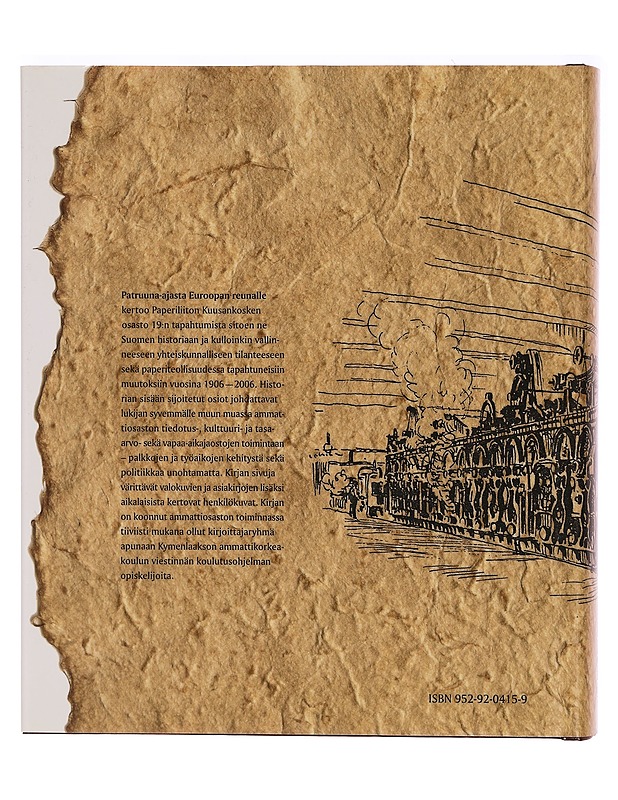 Patruuna-ajasta Euroopan reunalle
kertoo Paperiliiton Kuusankosken
osasto 19:n tapahtumista sitoen ne
Suomen historiaan ja kulloinkin vallin-
neeseen yhteiskunnalliseen tilanteeseen
sekä paperiteollisuudessa tapahtuneisiin
muutoksiin vuosina 1906—2006. Histo-
rian sisään sijoitetut osiot johdattavat
lukijan syvemmälle muun muassa ammat-
tiosaston tiedotus-, kulttuuri- ja tasa-
arvo- sekä vapaa-aikajaostojen toimintaan
– palkkojen ja työaikojen kehitystä sekä
politiikkaa unohtamatta. Kirjan sivuja
värittävät valokuvien ja asiakirjojen lisäksi
aikalaisista kertovat henkilökuvat. Kirjan
on koonnut ammattiosaston toiminnassa
tiiviisti mukana ollut kirjoittajaryhmä
apunaan Kymenlaakson ammattikorkea-
koulun viestinnän koulutusohjelman
opiskelijoita.
ISBN 952-92-0415-9